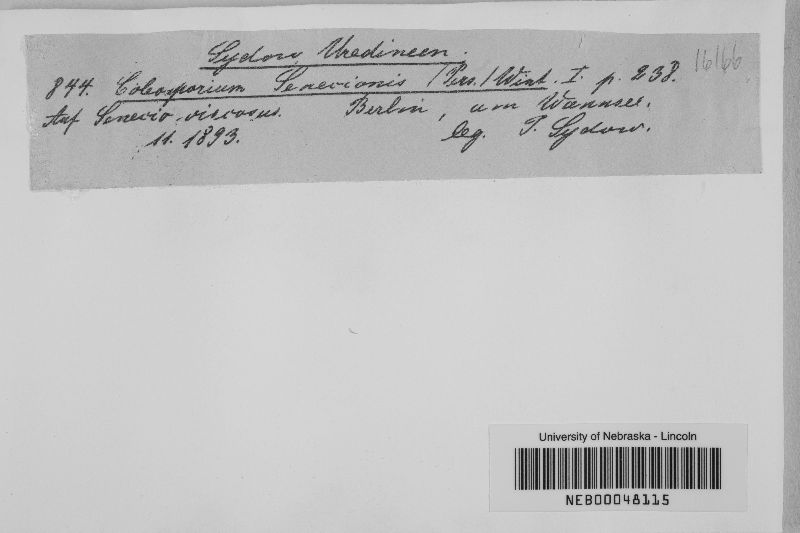 Sydow Uredineen.
16166
844. Coleosporium Senecionis (Pers.) Wint. I. p. 238.
Auf Senecio viscosus. Berlin, am Wannsee.
11. 1893. leg. P. Sydow.
University of Nebraska - Lincoln
NEB00048115